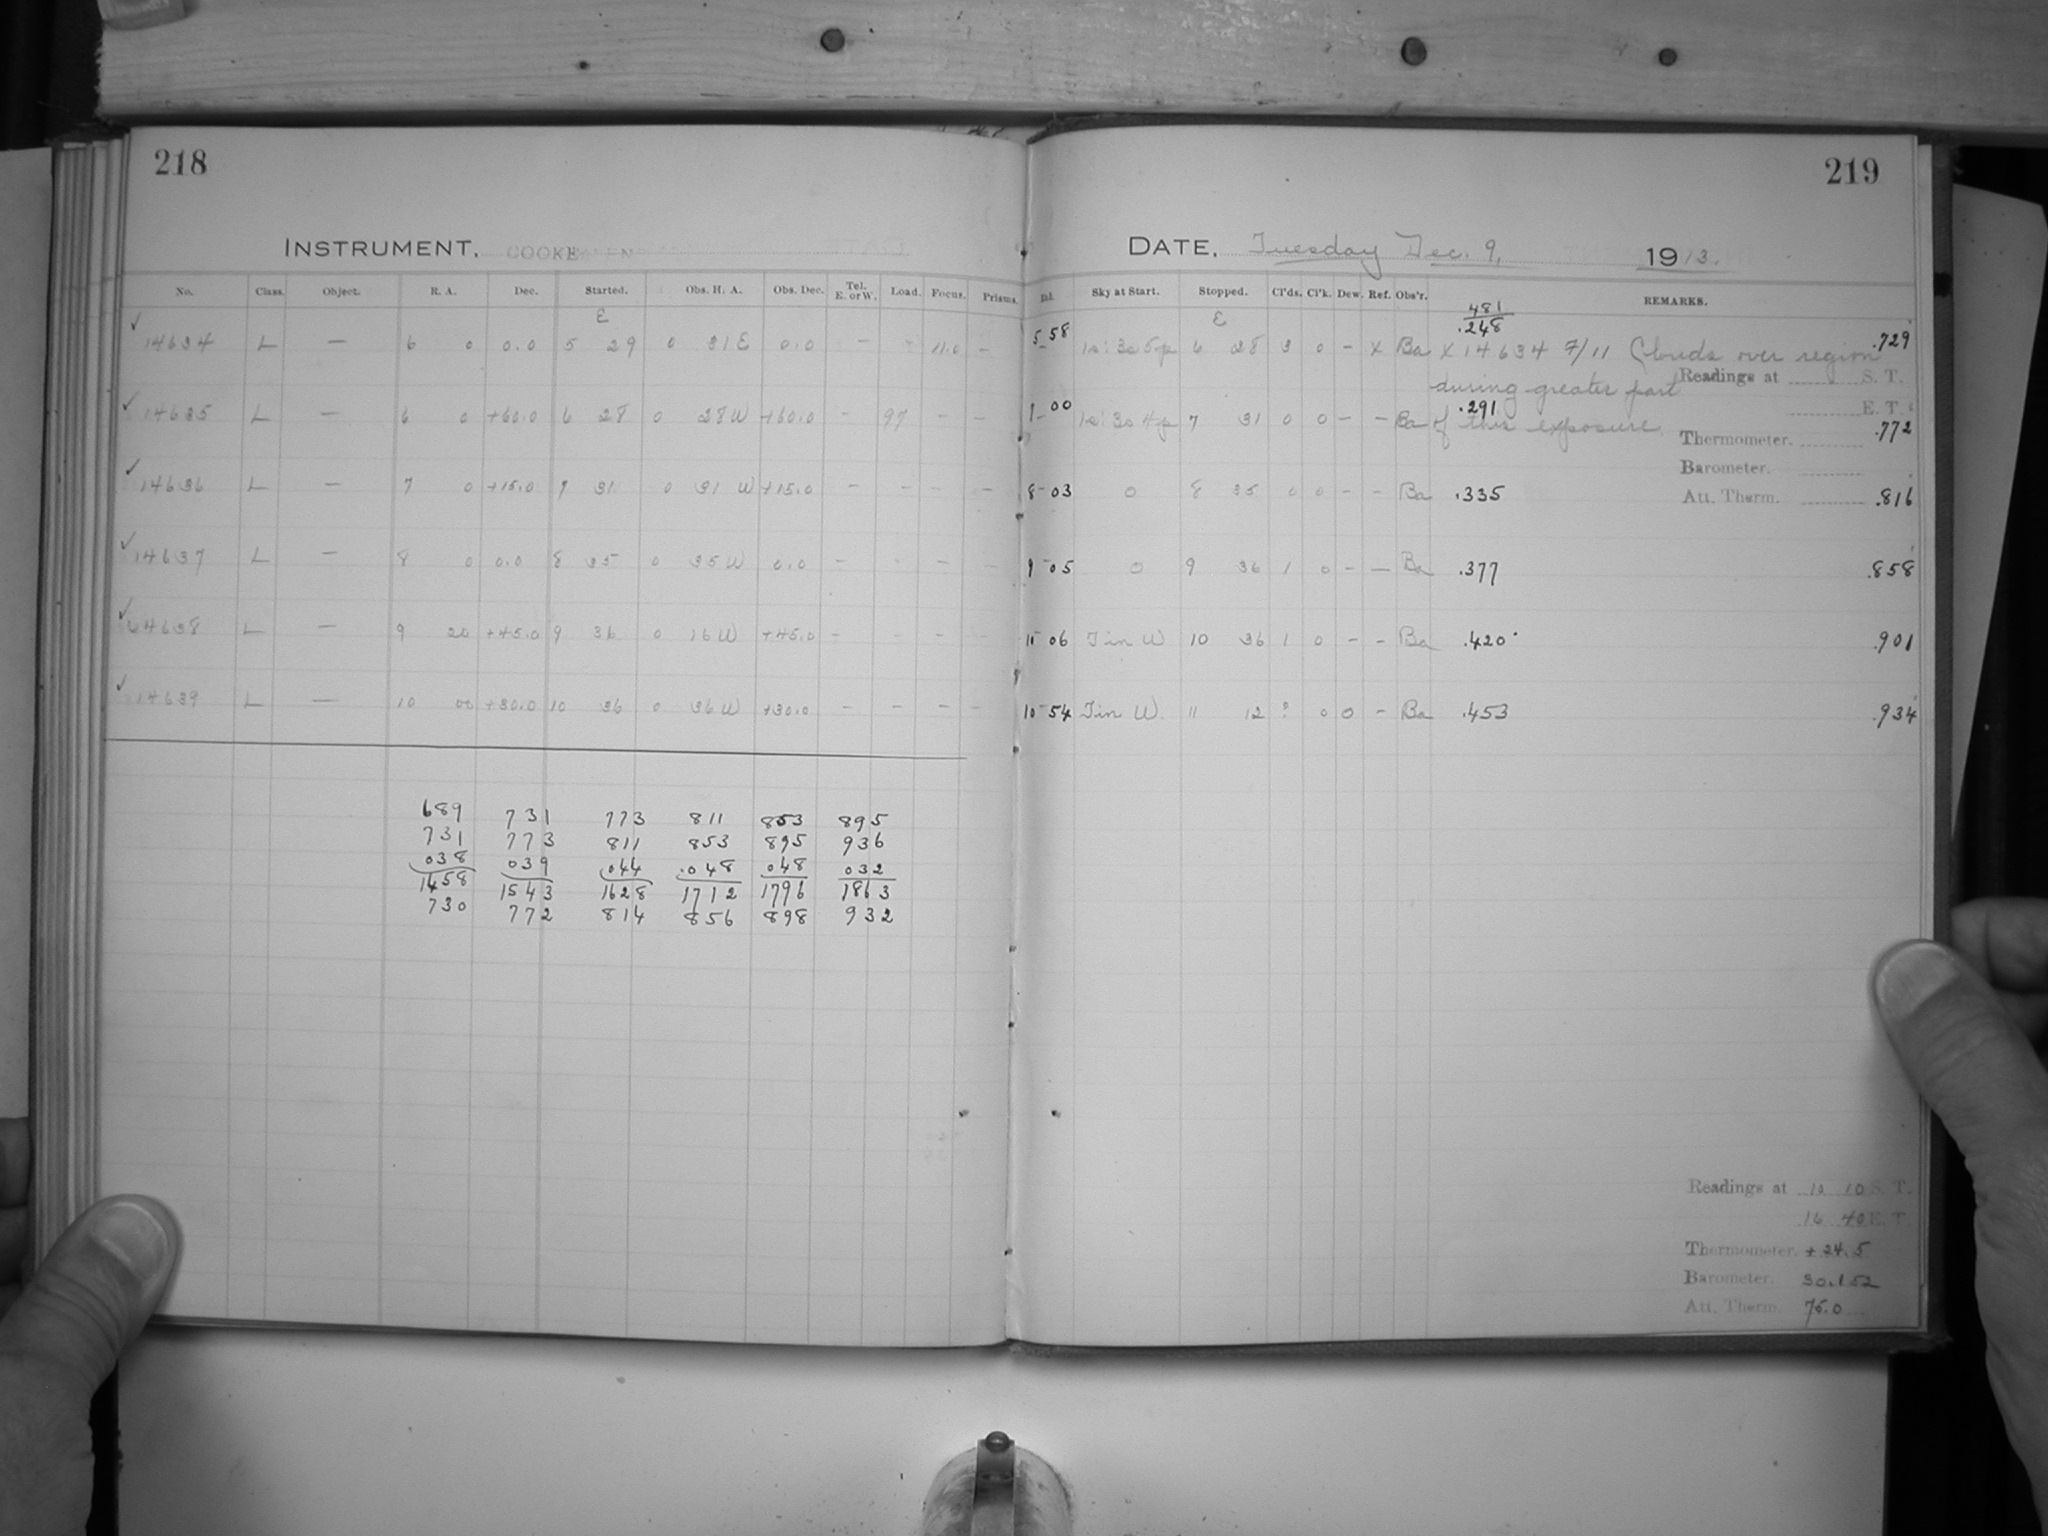 218
INSTRUMENT. COOKE
No. Class. Object. R. A. Dec. Started. Obs. H. A. Obs. Dec. Tel. E. or W. Load. Focus. Prisms.
E
✓ 14634 L — 6 0 0.0 5 29 0 31 E 0.0 — - 11.0 —
✓ 14635 L — 6 0 +60.0 6 28 0 28 W +60.0 - 97 - -
✓ 14636 L — 7 0 +15.0 7 31 0 31 W +15.0 — - - —
✓ 14637 L — 8 0 0.0 8 35 0 35 W 0.0 — - — —
✓ 14638 L — 9 20 +45.0 9 36 0 16 W +45.0 — - - -
✓ 14639 L — 10 00 +30.0 10 36 0 36 W +30.0 — - — -
689 731 773 811 853 895
731 773 811 853 895 936
038 039 044 .048 048 032
1458 1543 1628 1712 1796 1863
730 772 814 856 898 932
219
DATE. Tuesday Dec. 9, 1913.
Sky at Start. Stopped. Cl'ds. Cl'k. Dew. Ref. Obs'r. REMARKS.
E
481
.248
5-58 6 28 3 0 - X Ba X 14634 7/11 Clouds over region .729
during greater part Readings at S. T.
E. T.
-00 7 31 0 0 - - Ba of this exposure. .291 .772
Thermometer.
Barometer.
8-03 0 8 35 0 0 - - Ba .335 Att. Therm. .816
9-05 0 9 36 1 0 - — Ba .377 .858
06 10 36 1 0 - - Ba .420 .901
10-54 11 12 0 0 - Ba .453 .934
Readings at 10 10 S. T.
16 40 E. T.
Thermometer. +24.5
Barometer. 30.152
Att. Therm. 75.0